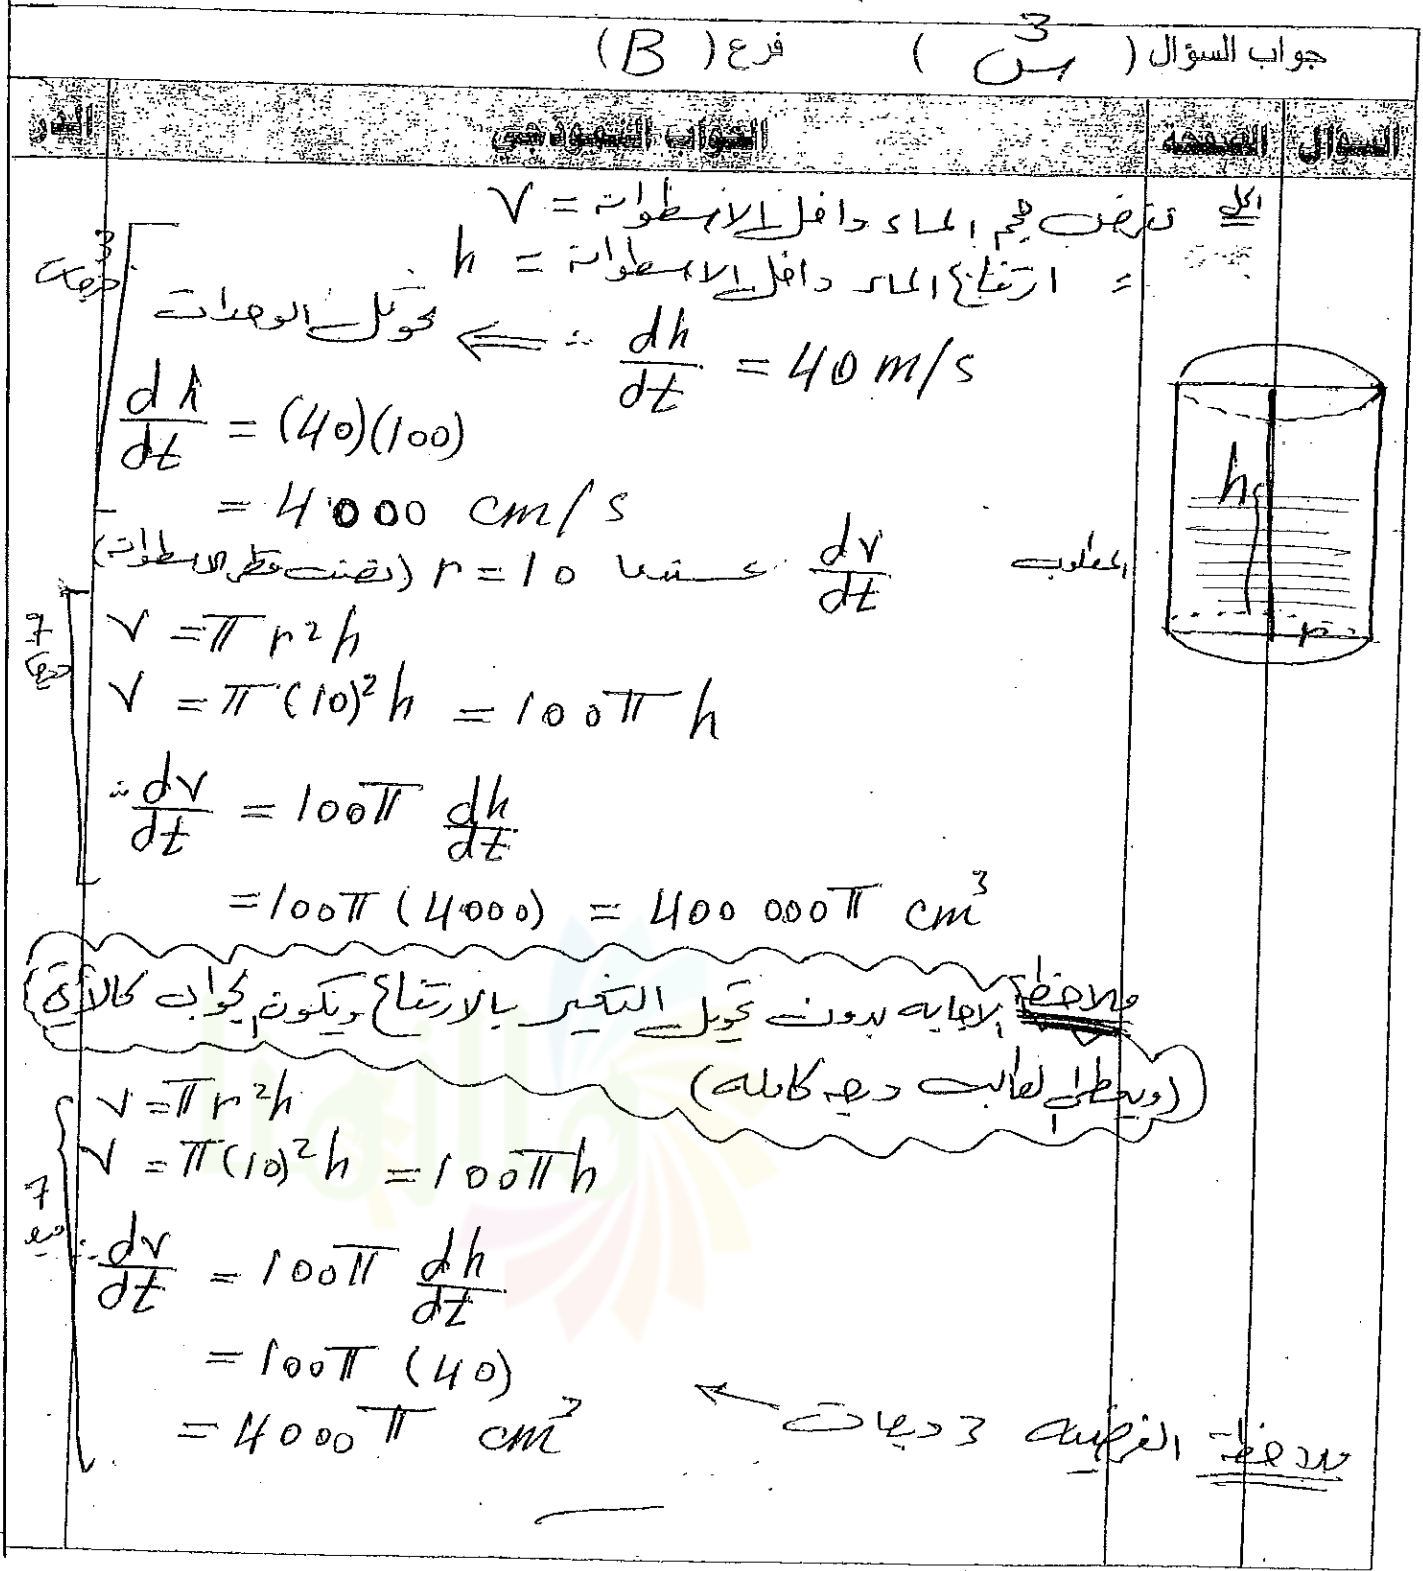 جواب السؤال ( س3 ) فرع ( B )
السؤال الصفحة الجواب النموذجي
الحل نفرض حجم الماء داخل الاسطوانة = V
= ارتفاع الماء داخل الاسطوانة = h
3 درجات
∵ dh/dt = 40 m/s ⇐ تحويل الوحدات
dh/dt = (40)(100)
= 4000 cm/s
المطلوب dv/dt عندما r = 10 (نصف قطر الاسطوانة)
h
r
7 درجات
V = π r² h
V = π (10)² h = 100π h
∴ dv/dt = 100π dh/dt
= 100π (4000) = 400 000π cm³
ملاحظة الاجابه بدون تحويل التغير بالارتفاع ويكون الجواب كالآتي
(ويعطى الطالب درجه كامله)
V = π r² h
V = π (10)² h = 100π h
7
∴ dv/dt = 100π dh/dt
= 100π (40)
= 4000π cm³
ملاحظة الفرضيه 3 درجات ←